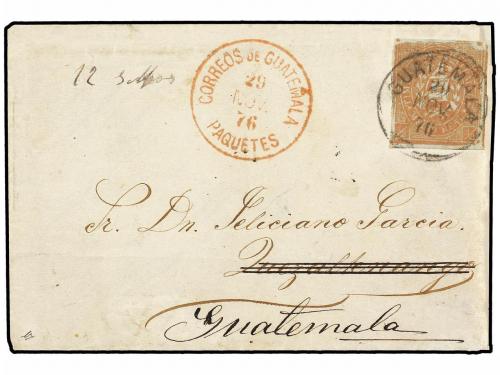 12 sellos
CORREOS DE GUATEMALA
29
NOV.
76
PAQUETES
GUATEMALA
29
NOV.
76
Sr. Dn. Feliciano Garcia.
Quezaltenango
Guatemala